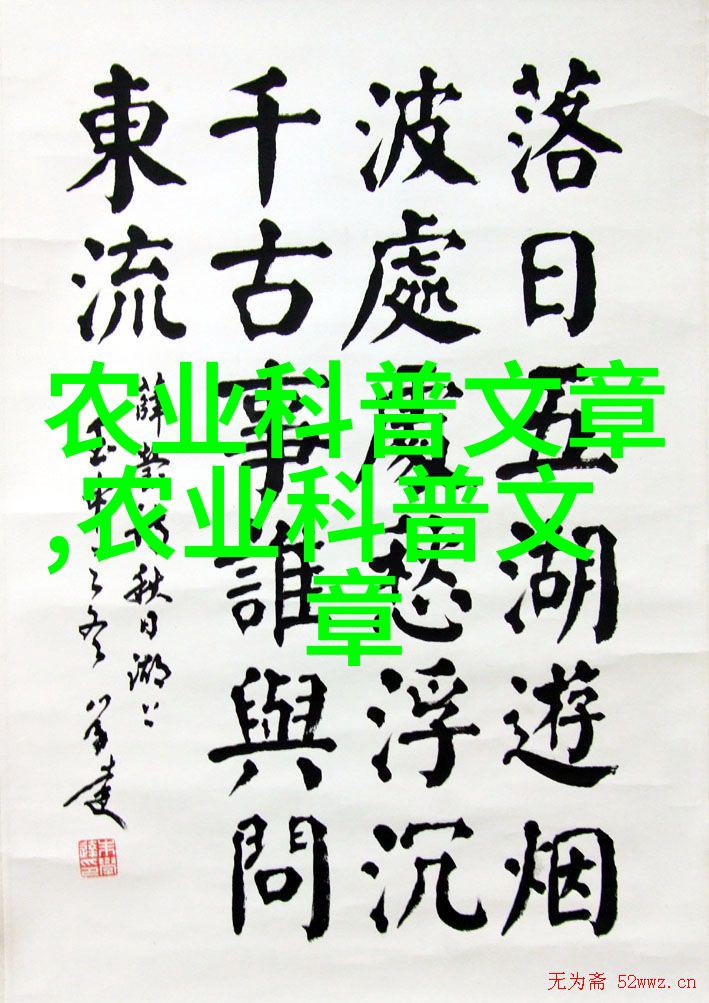 落日五湖遊烟
波處處愁浮沉
千古事誰與問
東流
薛瑩 秋日湖上
农业科普文章
,农业科普文
章
无为斋 52wwz.cn